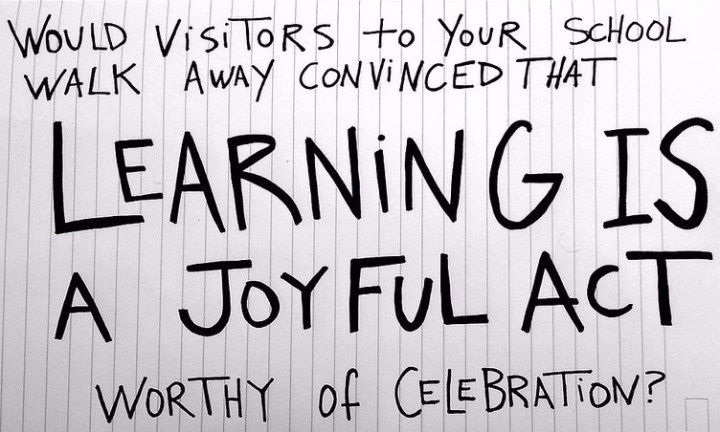 WOULD ViSiTORS to YOUR SCHOOL
WALK AWAY CONViNCED THAT
LEARNiNG IS
A JOYFUL ACT
WORTHY of CELEBRATiON?